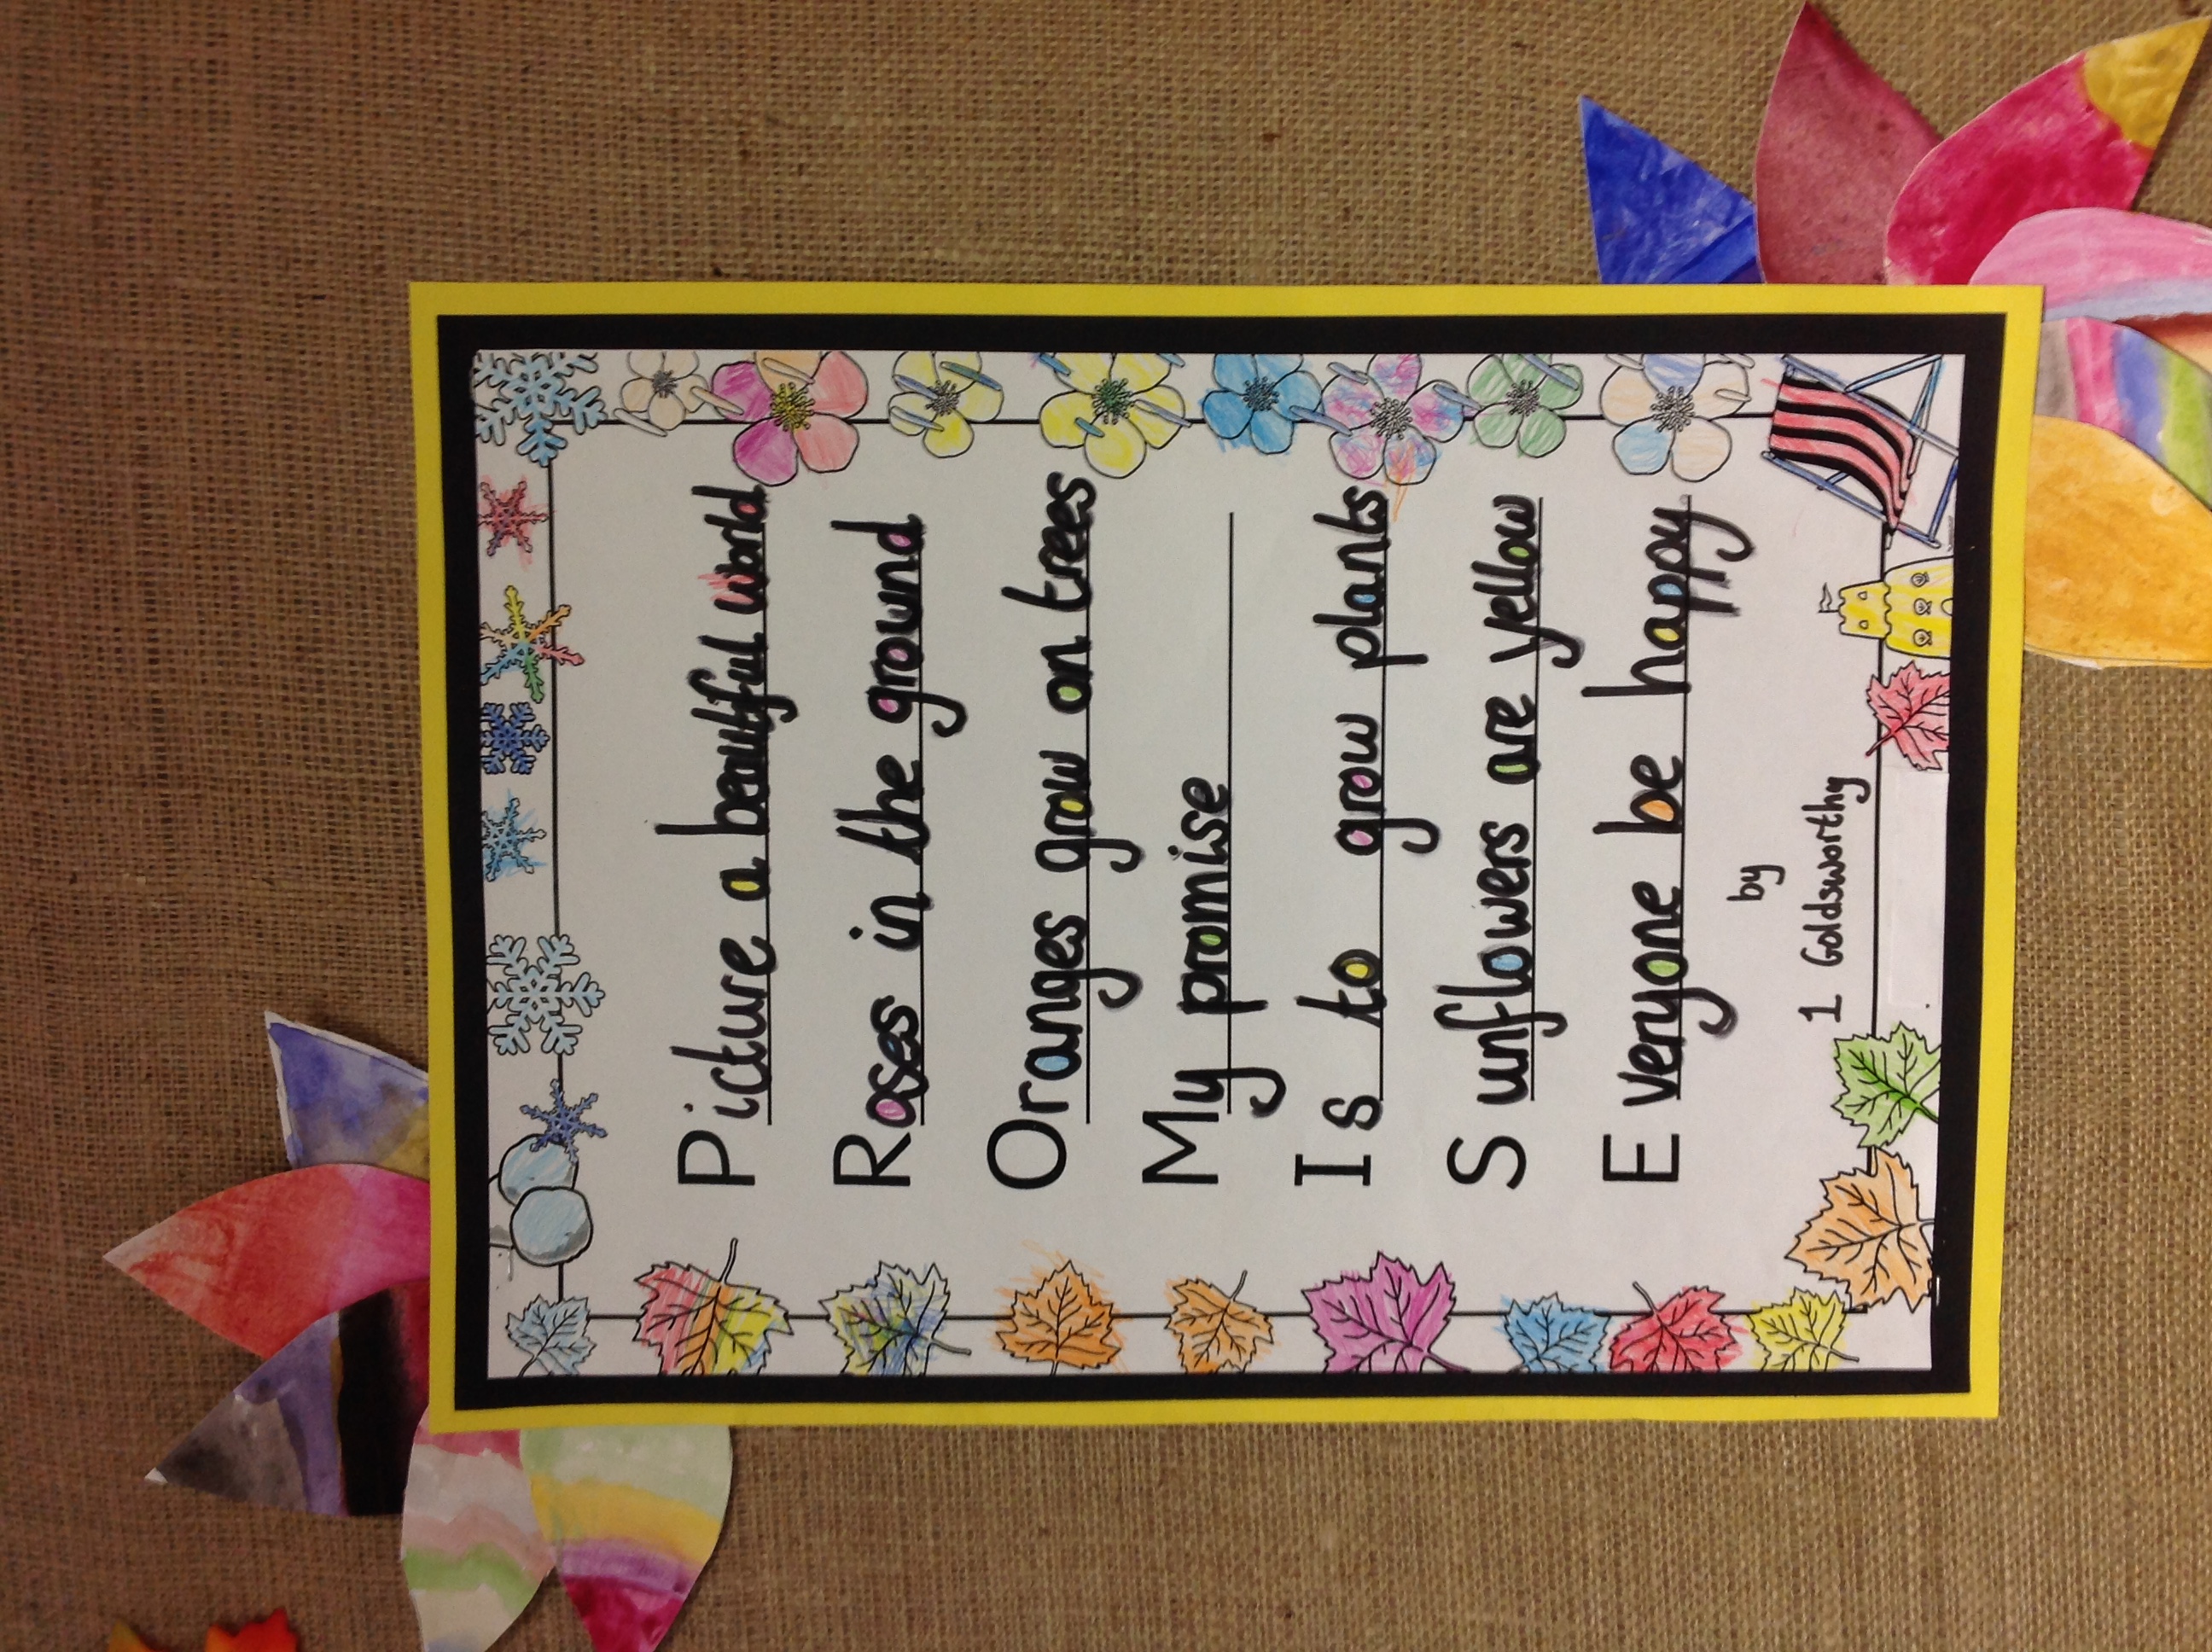 Picture a beautiful world
Roses in the ground
Oranges grow on trees
My promise
Is to grow plants
Sunflowers are yellow
Everyone be happy
by
1 Goldsworthy